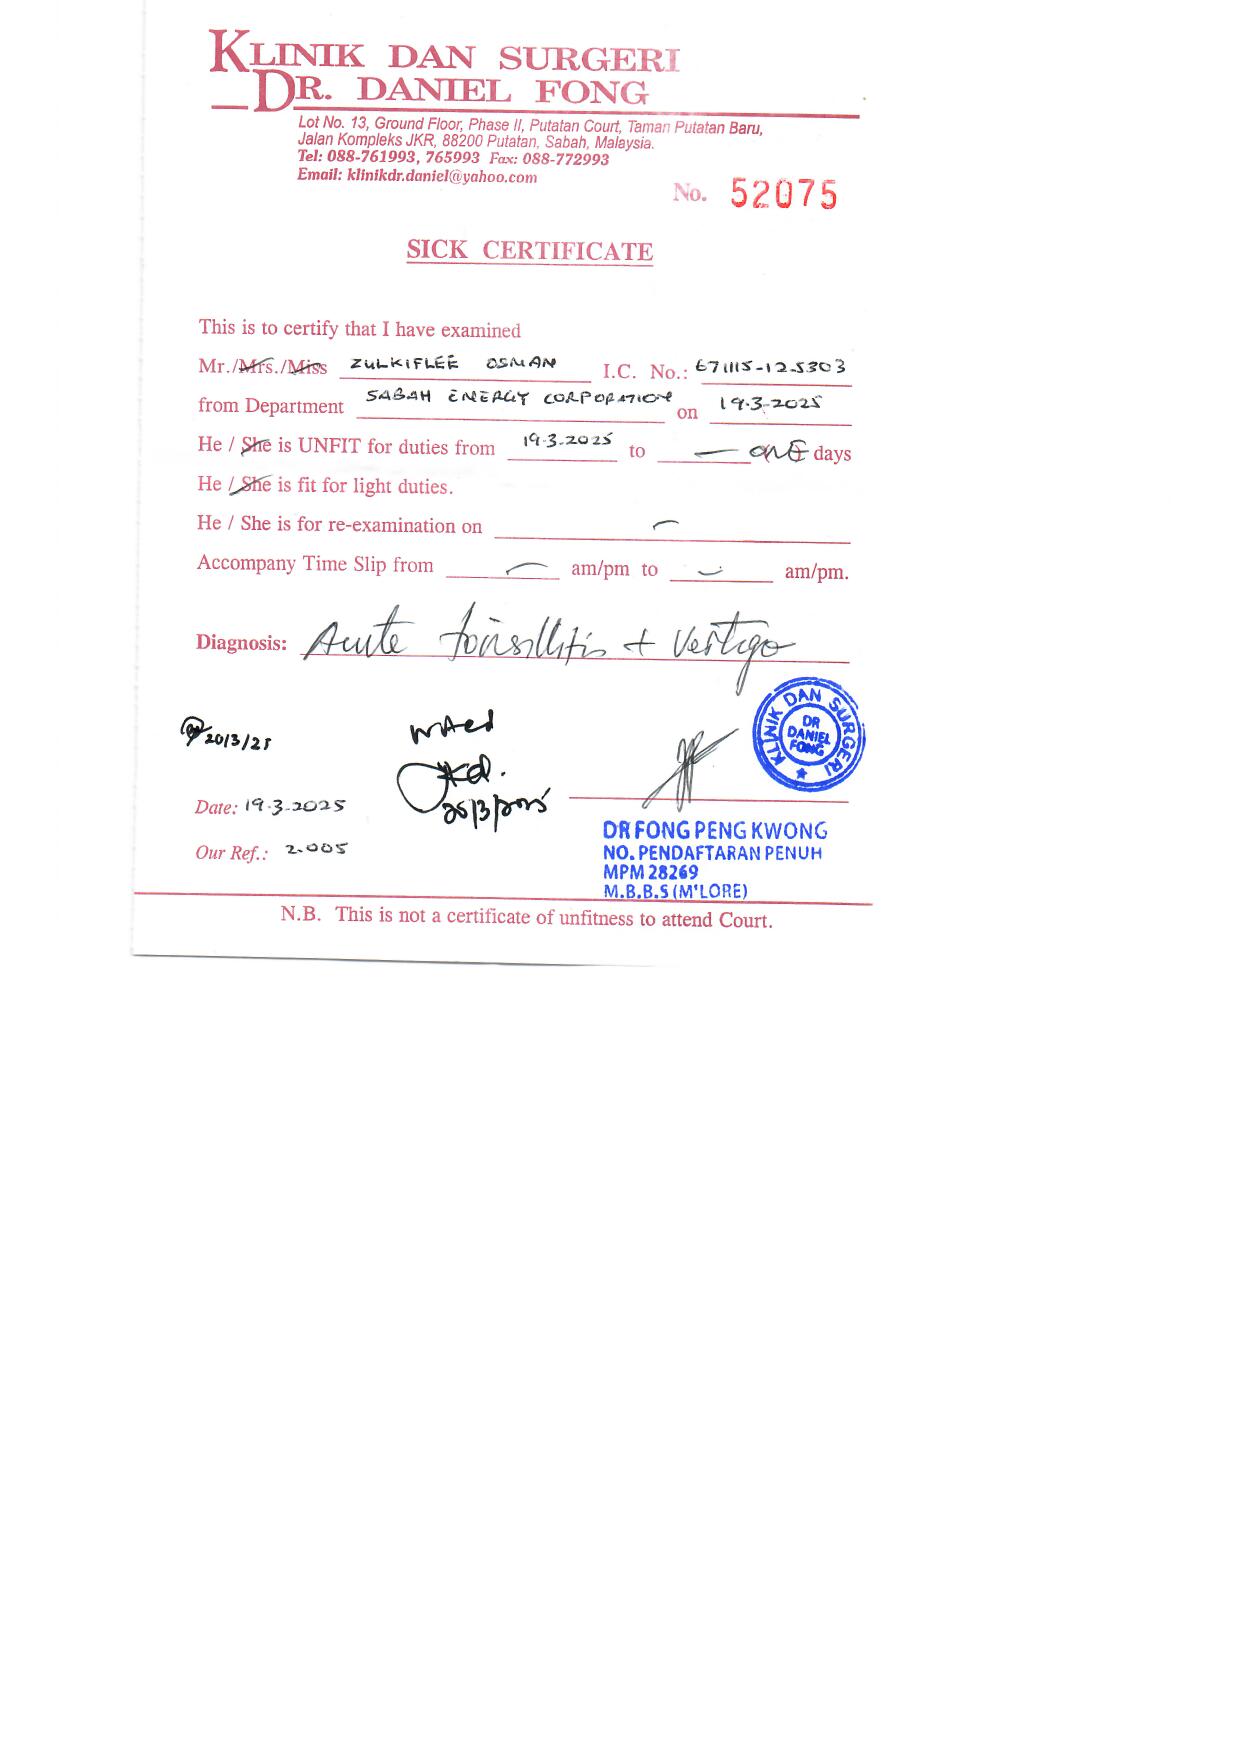 KLINIK DAN SURGERI
DR. DANIEL FONG
Lot No. 13, Ground Floor, Phase II, Putatan Court, Taman Putatan Baru,
Jalan Kompleks JKR, 88200 Putatan, Sabah, Malaysia.
Tel: 088-761993, 765993 Fax: 088-772993
Email: klinikdr.daniel@yahoo.com
No. 52075
SICK CERTIFICATE
This is to certify that I have examined
Mr./Mrs./Miss ZULKIFLEE OSMAN I.C. No.: 671115-12-5303
from Department SABAH ENERGY CORPORATION on 19.3.2025
He / She is UNFIT for duties from 19.3.2025 to — ONE days
He / She is fit for light duties.
He / She is for re-examination on —
Accompany Time Slip from — am/pm to — am/pm.
Diagnosis: Acute tonsillitis + Vertigo
KLINIK DAN SURGERI
DR
DANIEL
FONG
20/3/25
25/3/2025
Date: 19.3.2025
Our Ref.: 2.005
DR FONG PENG KWONG
NO. PENDAFTARAN PENUH
MPM 28269
M.B.B.S (M'LORE)
N.B. This is not a certificate of unfitness to attend Court.